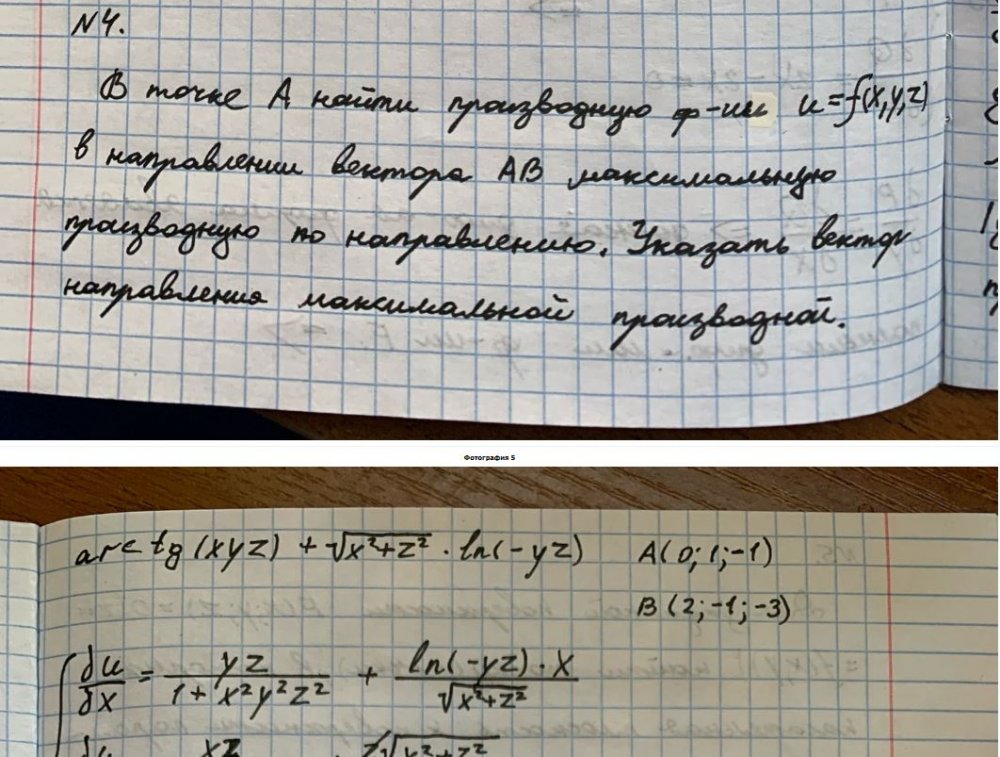 №4.
В точке А найти производную ф-ии u=f(x,y,z)
в направлении вектора АВ максимальную
производную по направлению. Указать вектор
направления максимальной производной.
Фотография 5
arctg(xyz) + √(x²+z²) · ln(-yz) A(0;1;-1)
B(2;-1;-3)
∂u/∂x = yz/(1+x²y²z²) + ln(-yz)·x/√(x²+z²)